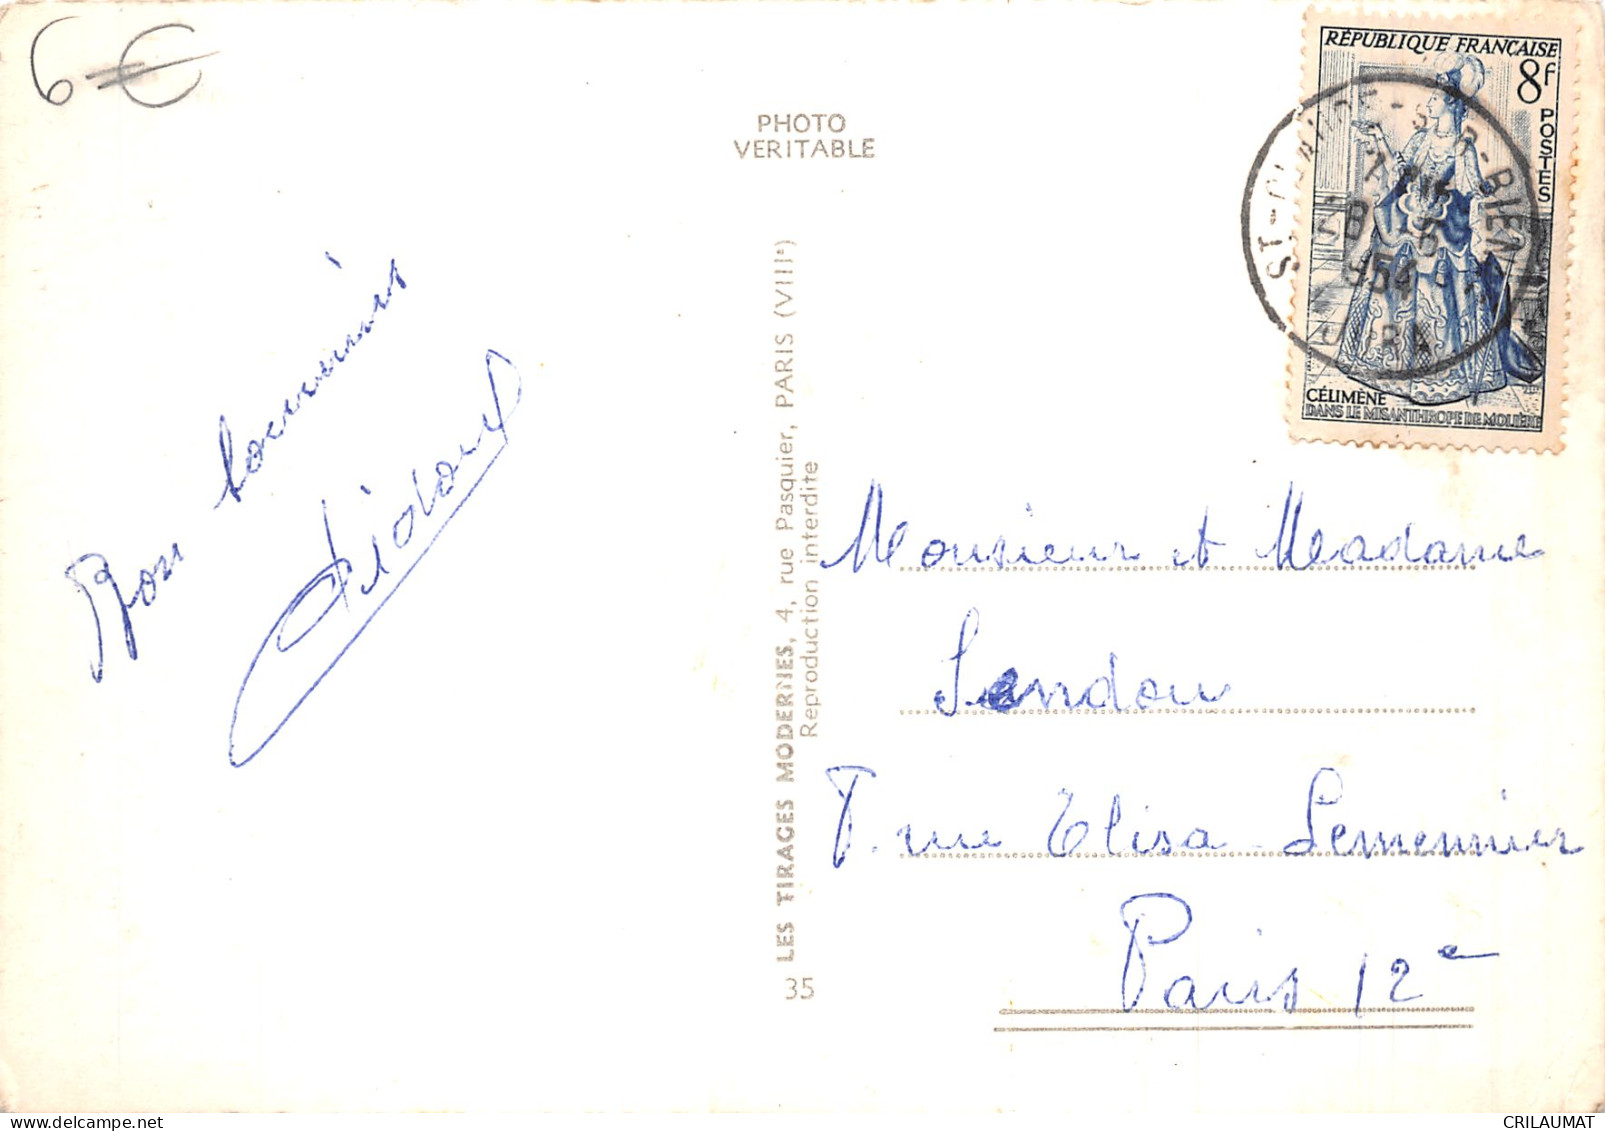 6 €
PHOTO
VERITABLE
RÉPUBLIQUE FRANÇAISE
8f
POSTES
CÉLIMÈNE
DANS LE MISANTHROPE DE MOLIÈRE
ST-CLAUDE-S-R-BIENNE
1954
JURA
Bon souvenirs
LES TIRAGES MODERNES, 4, rue Pasquier, PARIS (VIIIe)
Reproduction interdite
35
Monsieur et Madame
Sandou
7. rue Elisa Lemonnier
Paris 12e
CRILAUMAT